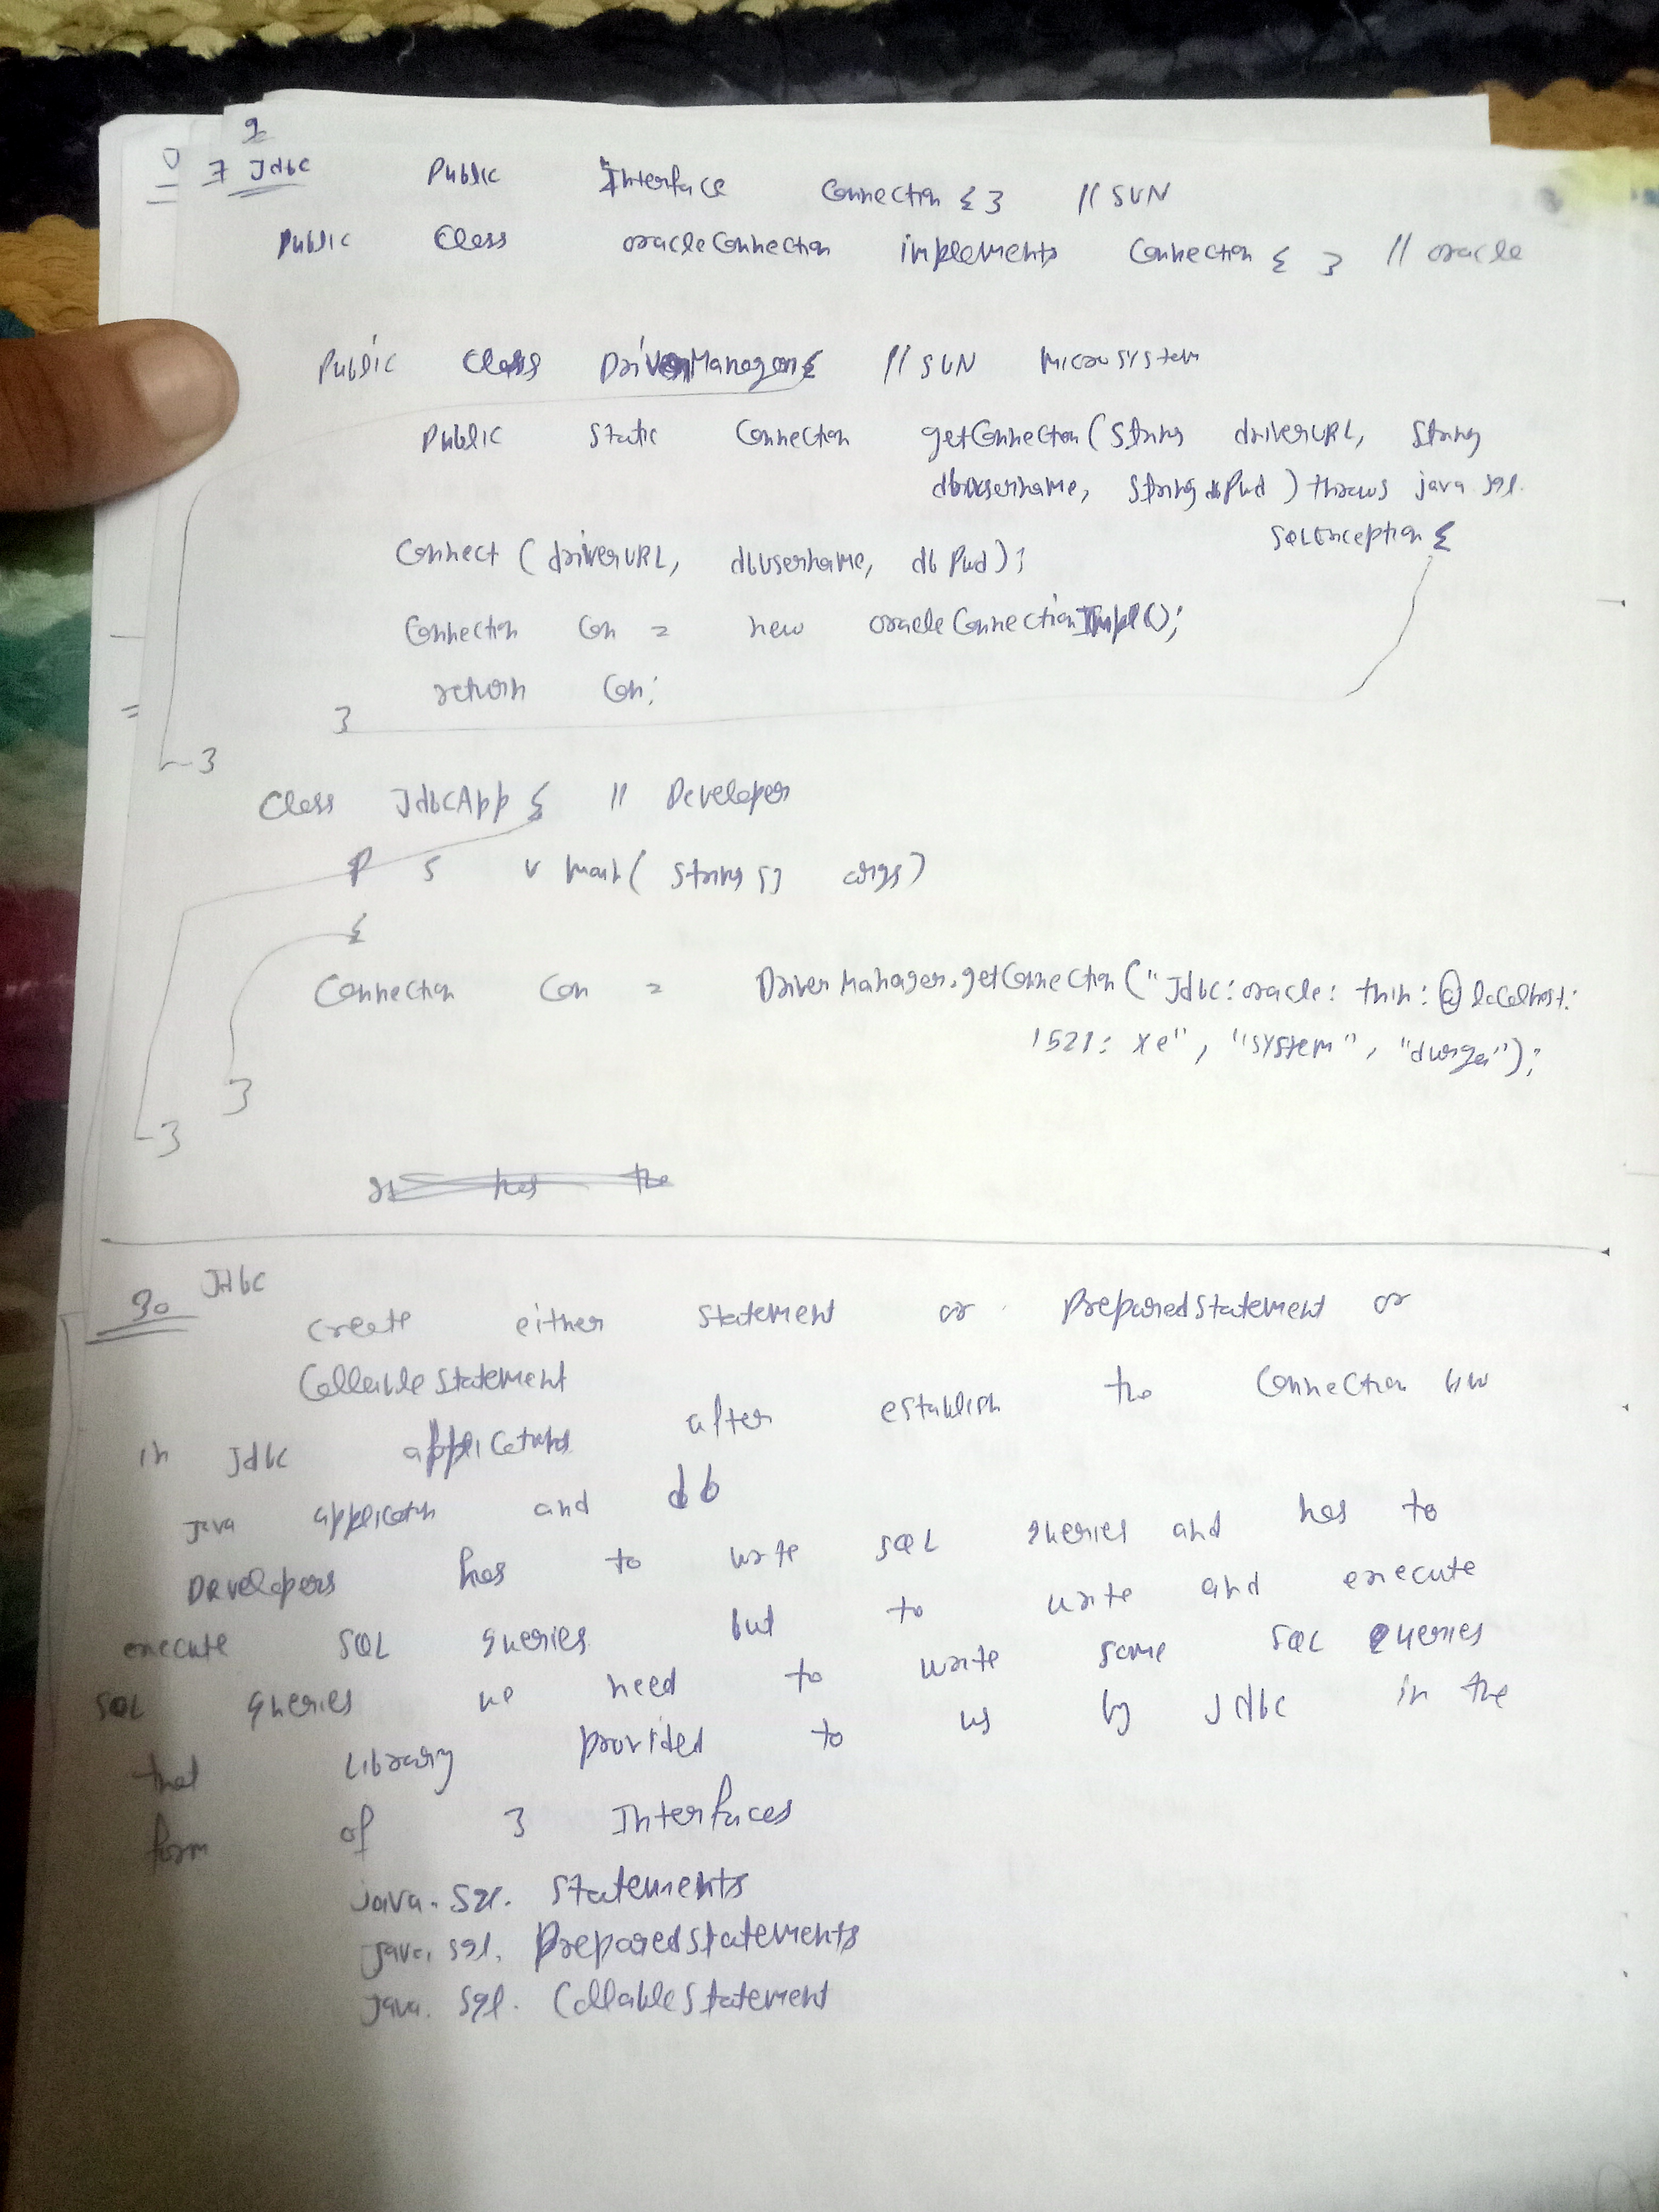 7 Jdbc Public Interface Connection { } // SUN
Public Class oracleConnection implements Connection { } // oracle
Public Class DriverManager { // SUN Microsystem
Public Static Connection getConnection(String driverURL, String
dbusername, String dbPwd) throws java.sql.
SQLException {
Connect (driverURL, dbusername, dbPwd);
Connection Con = new oracleConnectionImpl();
return Con;
}
}
Class JdbcApp { // Developer
P S V main( String [] args)
{
Connection Con = DriverManager.getConnection("Jdbc:oracle:thin:@localhost:
1521: xe", "system", "durga");
}
}
has the
Jdbc
Create either Statement or PreparedStatement or
CallableStatement
in Jdbc applications after establish the Connection b/w
Java application and db
Developers has to write SQL queries and has to
execute SQL queries but to write and execute
SQL queries we need to write some SQL queries
that Library provided to us by Jdbc in the
form of 3 Interfaces
java. sql. Statements
java. sql. PreparedStatements
java. sql. CallableStatement